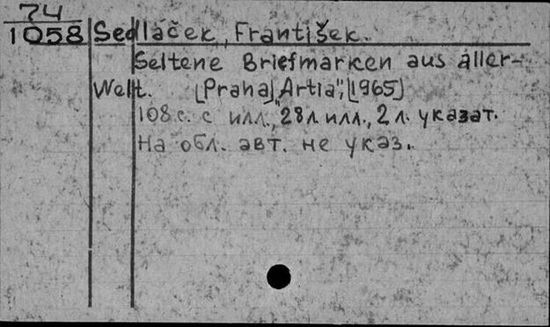 74
1058 Sedláček, František.
Seltene Briefmarken aus aller-
Welt. [Praha] "Artia", [1965]
108 с. с илл., 28 л. илл., 2 л. указат.
На обл. авт. не указ.